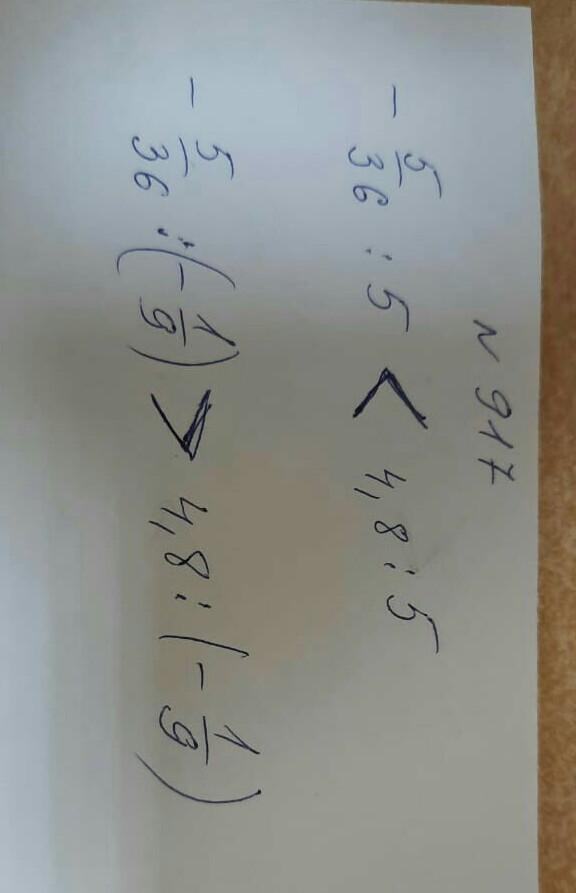 N 917
- 5/36 : 5 < 4,8 : 5
- 5/36 : (- 1/9) > 4,8 : (- 1/9)